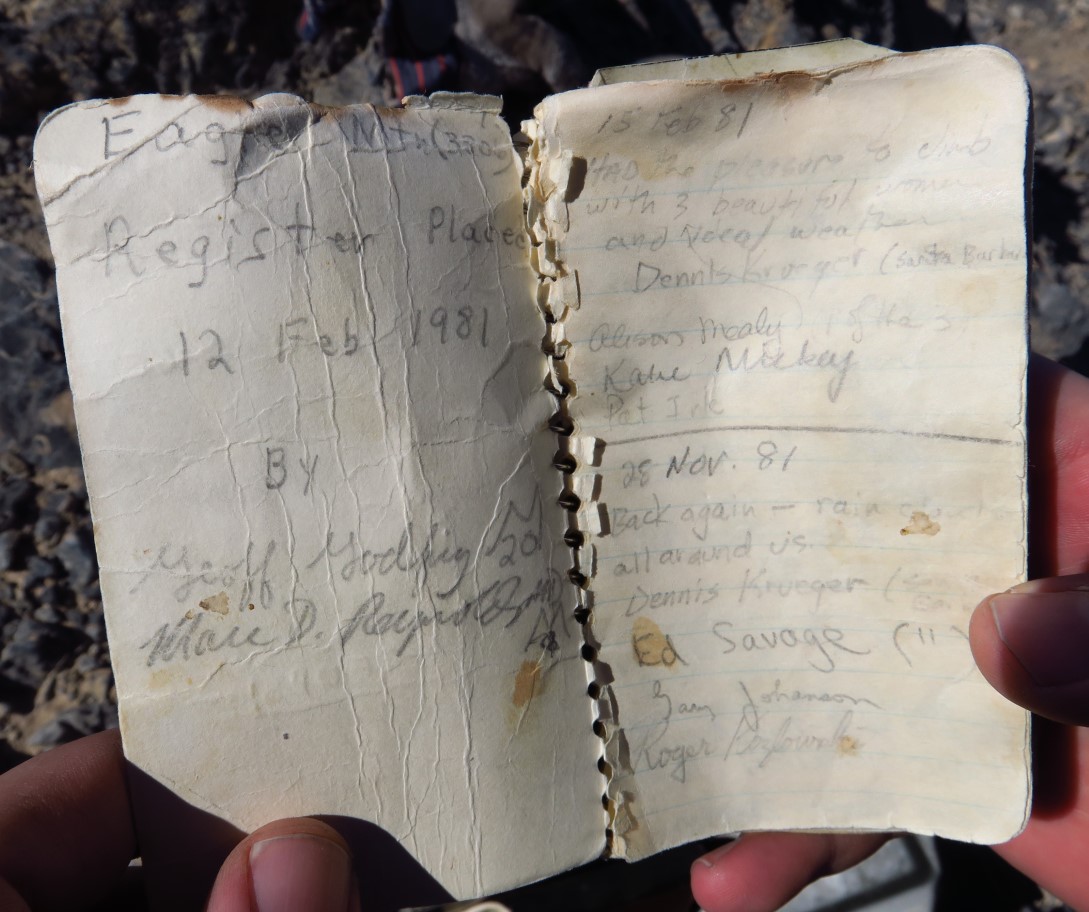 Eagle Mtn (3806)
Register Placed
12 Feb 1981
By
Geoff Godfrey
Marc D. Reynolds
15 Feb 81
Had the pleasure to climb
with 3 beautiful women
and ideal weather
Dennis Krueger (Santa Barbara
Alison Mealy 1 of the 3
Katie Mickey
Pat
28 Nov. 81
Back again — rain
all around us.
Dennis Krueger (
Ed Savage (" )
Gary Johanson
Roger